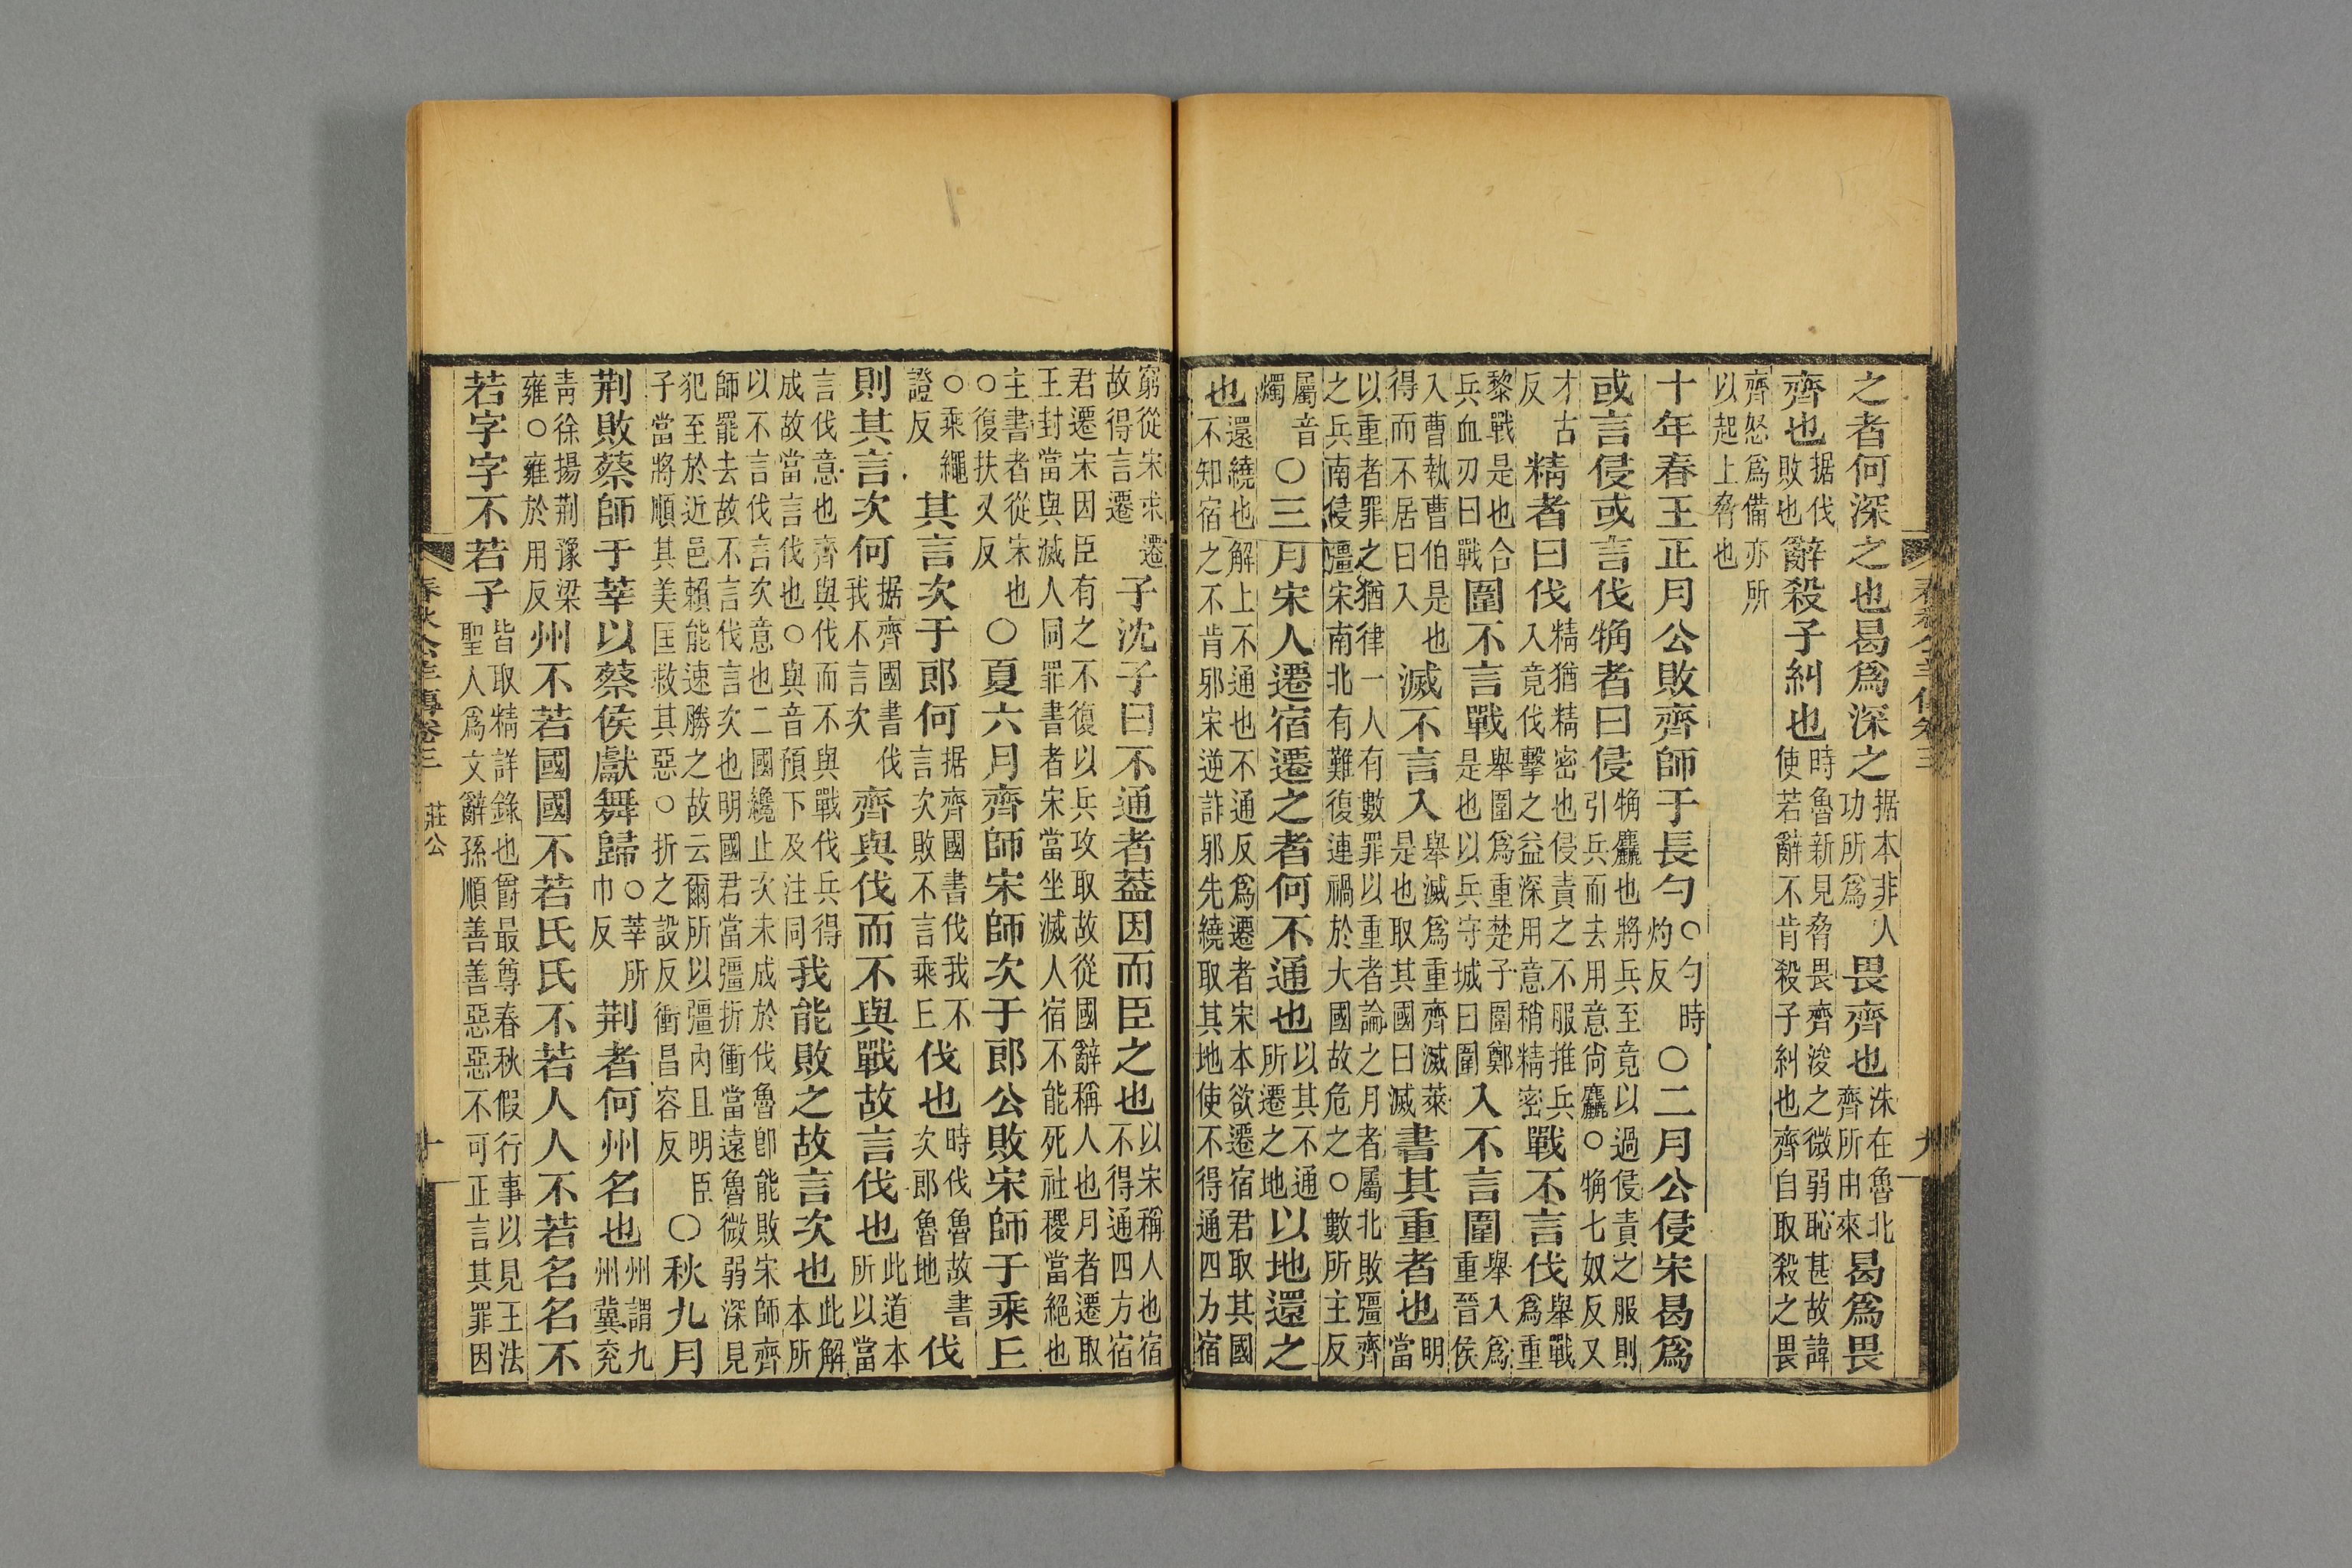 春秋公羊傳卷三 九
之者何深之也曷爲深之据本非人功所爲畏齊也洙在魯北齊所由來曷爲畏
齊也据伐敗也辭殺子糾也時魯新見脅畏齊浚之微弱恥甚故諱使若辭不肯殺子糾也齊自取殺之畏
齊怒爲備亦所以起上脅也
十年春王正月公敗齊師于長勺○勺時灼反○二月公侵宋曷爲
或言侵或言伐觕者曰侵觕麤也將兵至竟以過侵責之服則引兵而去用意尙麤○觕七奴反又
才古反精者曰伐精猶精密也侵責之不服推兵入竟伐擊之益深用意稍精密戰不言伐舉戰爲重
黎戰是也合兵血刃曰戰圍不言戰舉圍爲重楚子圍鄭是也以兵守城曰圍入不言圍舉入爲重晉侯
入曹執曹伯是也得而不居曰入滅不言入舉滅爲重齊滅萊是也取其國曰滅書其重者也明當
以重者罪之猶律一人有數罪以重者論之月者屬北敗彊齊之兵南侵彊宋南北有難復連禍於大國故危之○數所主反
屬音燭○三月宋人遷宿遷之者何不通也以其不通所遷之地以地還之
也還繞也解上不通也不通反爲遷者宋本欲遷宿君取其國不知宿之不肯邪宋逆詐邪先繞取其地使不得通四方宿
窮從宋求遷故得言遷子沈子曰不通者蓋因而臣之也以宋稱人也宿不得通四方宿
君遷宋因臣有之不復以兵攻取故從國辭稱人也月者遷取王封當與滅人同罪書者宋當坐滅人宿不能死社稷當絕也
主書者從宋也○復扶又反○夏六月齊師宋師次于郎公敗宋師于乘丘
○乘繩證反其言次于郎何据齊國書伐我不言次敗不言乘丘伐也時伐魯故書次郎魯地伐
則其言次何据齊國書伐我不言次齊與伐而不與戰故言伐也此道本所以當
言伐意也齊與伐而不與戰伐兵得成故當言伐也○與音預下及注同我能敗之故言次也此解本所
以不言伐言次意也二國纔止次未成於伐魯卽能敗宋師齊師罷去故不言伐言次也明國君當彊折衝當遠魯微弱深見
犯至於近邑賴能速勝之故云爾所以彊內且明臣子當將順其美匡救其惡○折之設反衝昌容反○秋九月
荆敗蔡師于莘以蔡侯獻舞歸○莘所巾反荆者何州名也州謂九州冀兗
靑徐揚荆豫梁雍○雍於用反州不若國國不若氏氏不若人人不若名名不
若字字不若子皆取精詳錄也爵最尊春秋假行事以見王法聖人爲文辭孫順善善惡惡不可正言其罪因
春秋公羊傳卷三 莊公 十